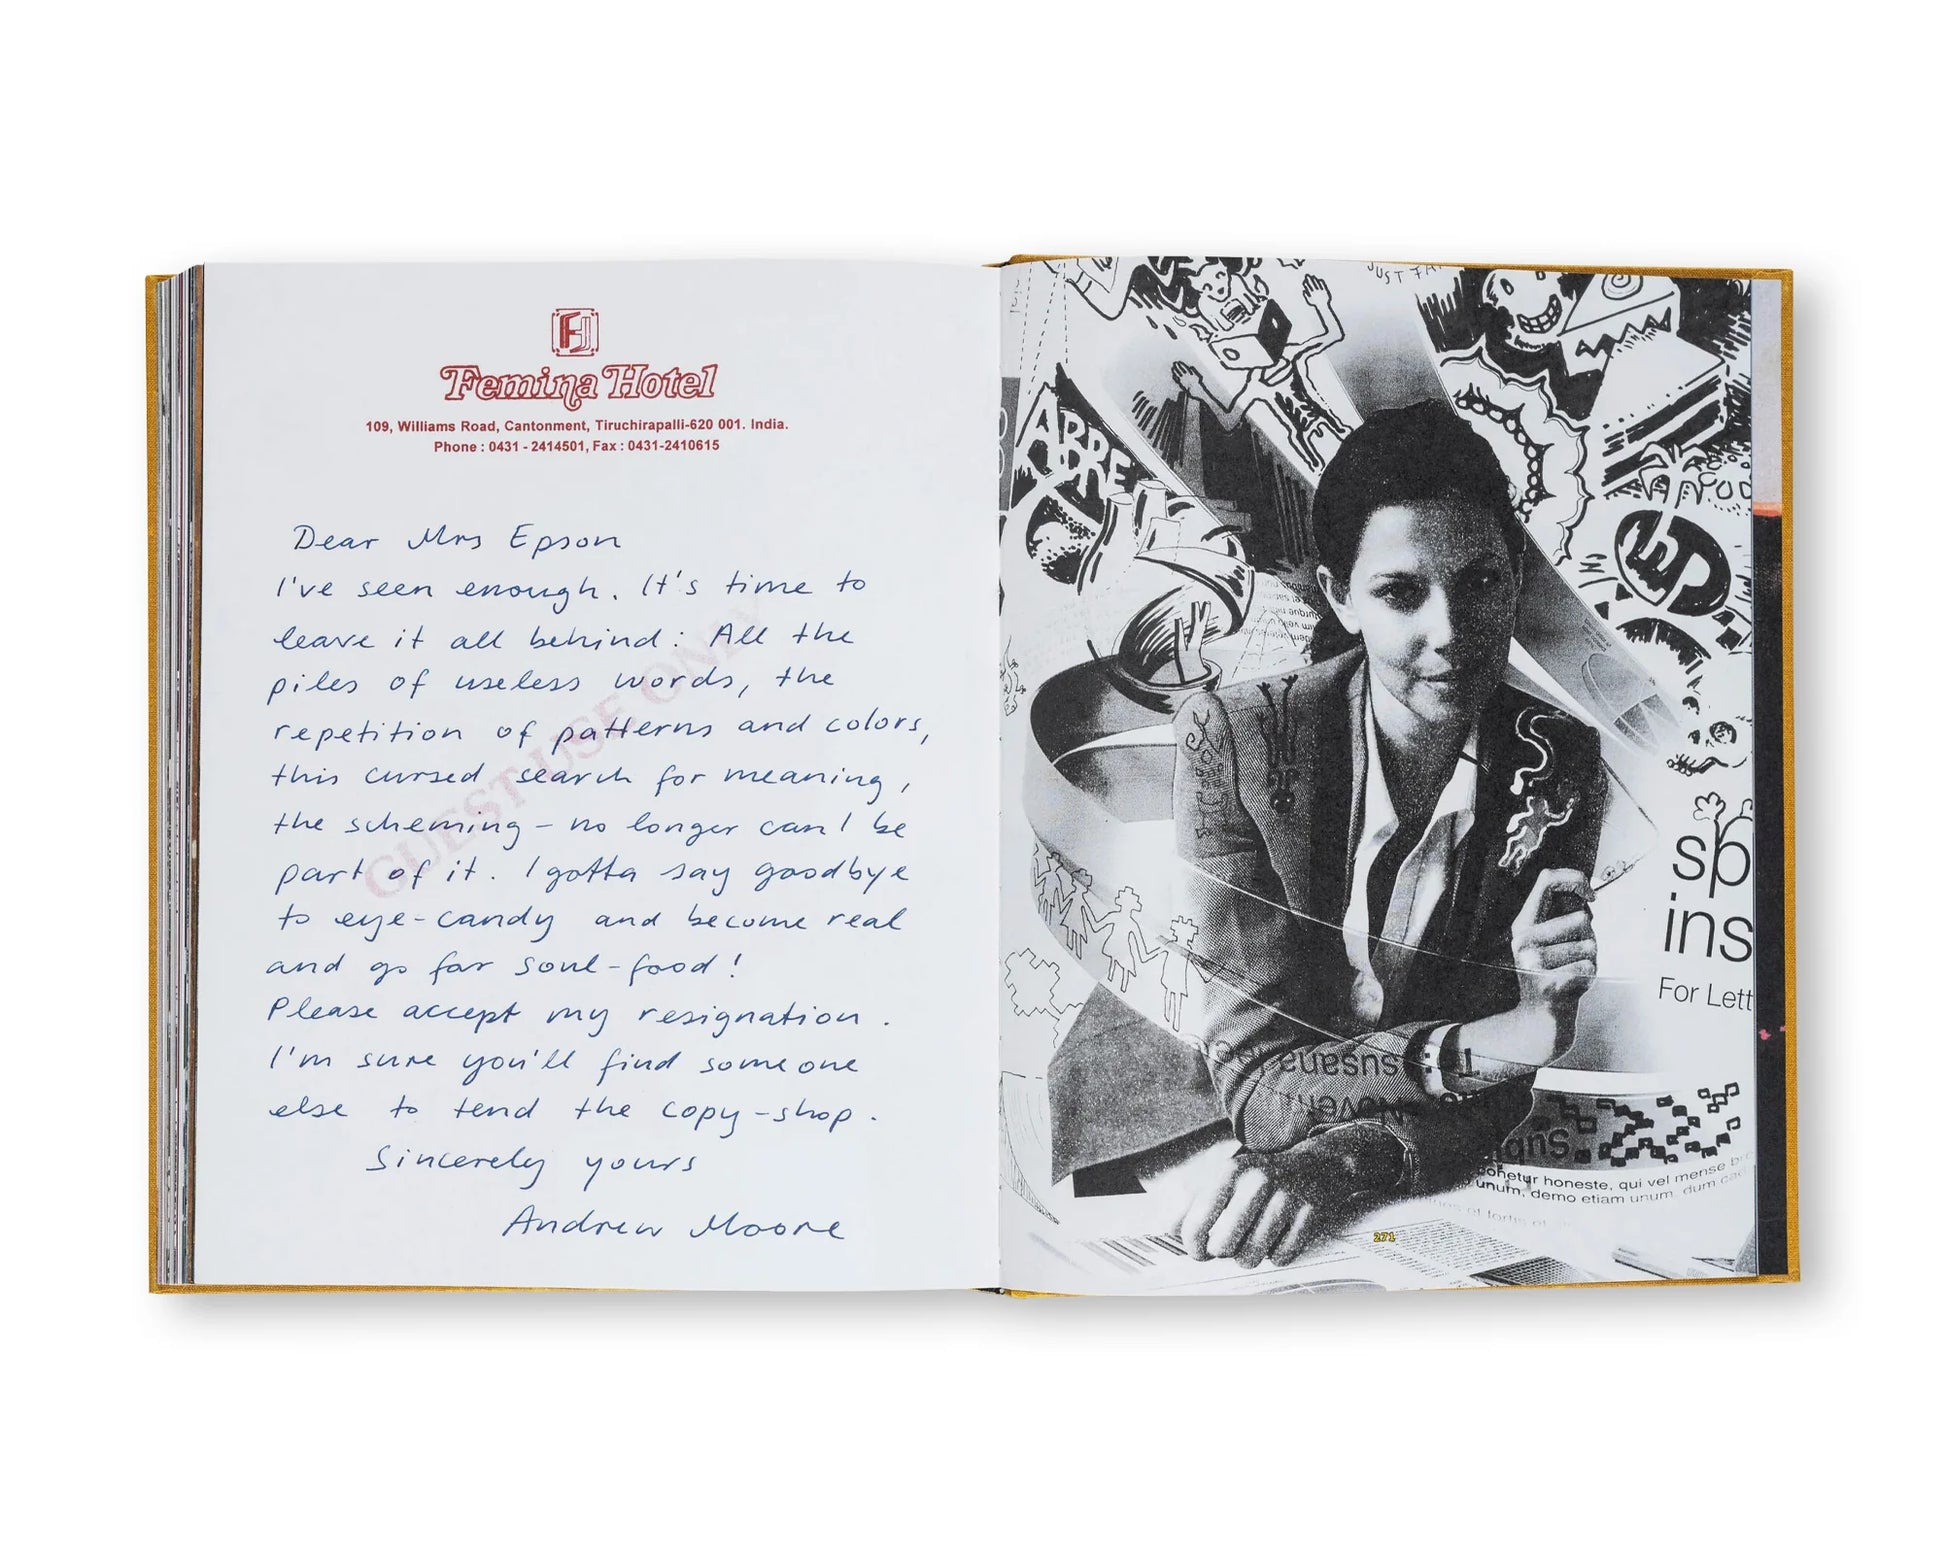 Femina Hotel
109, Williams Road, Cantonment, Tiruchirapalli-620 001. India.
Phone : 0431 - 2414501, Fax : 0431-2410615
GUEST USE ONLY
Dear Mrs Epson
I've seen enough. It's time to
leave it all behind: All the
piles of useless words, the
repetition of patterns and colors,
this cursed search for meaning,
the scheming – no longer can I be
part of it. I gotta say goodbye
to eye-candy and become real
and go for soul-food!
Please accept my resignation.
I'm sure you'll find someone
else to tend the copy-shop.
Sincerely yours
Andrew Moore
JUST
sp
ins
For Lett
susana
honeste, qui vel mense
unum, demo etiam unum dum
271